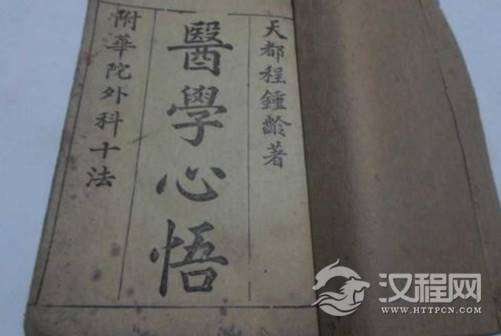 天都程鍾齡著
醫學心悟
附華陀外科十法
汉程网
WWW.HTTPCN.COM